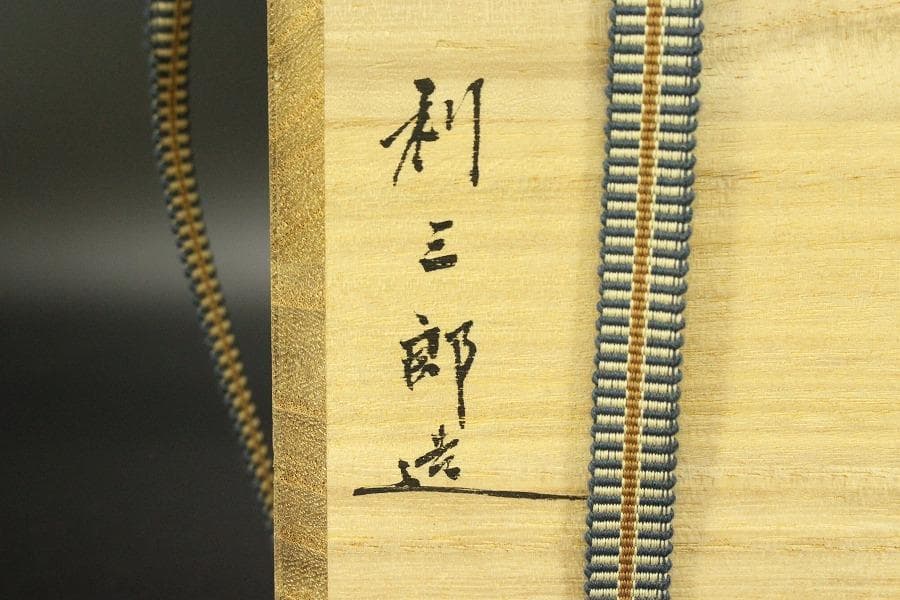 利三郎造